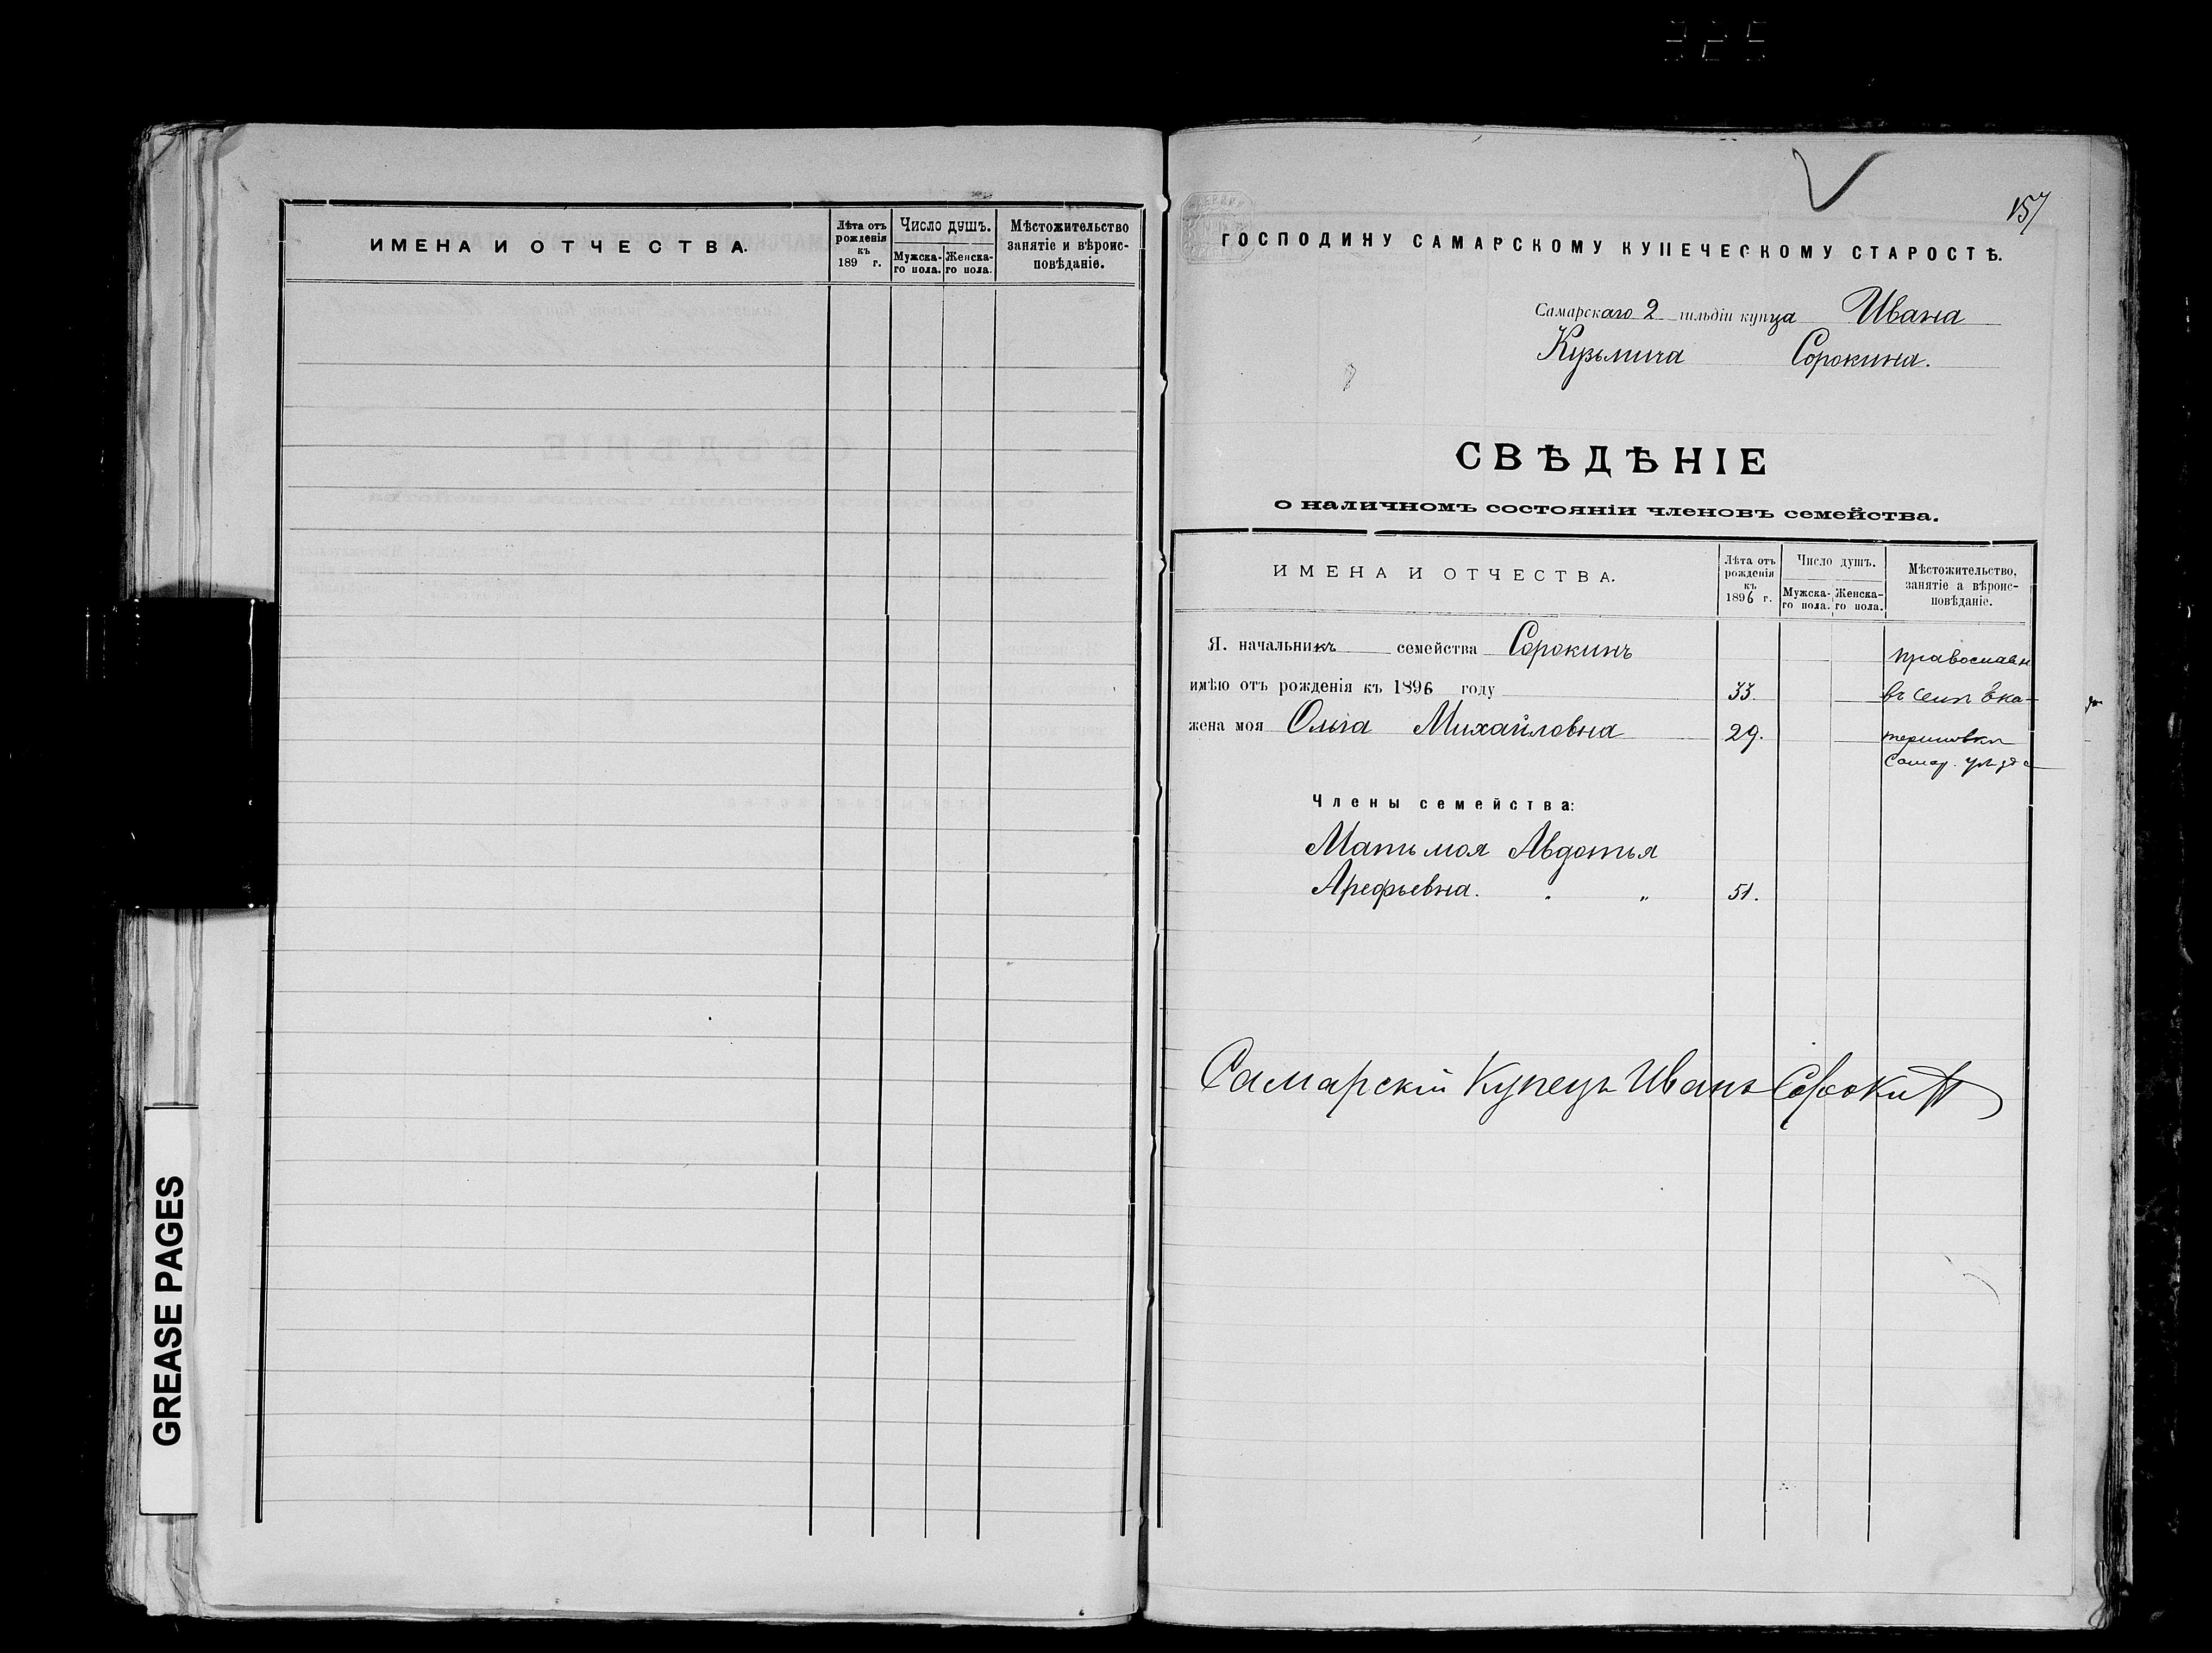 325
ИМЕНА И ОТЧЕСТВА.
Лѣта отъ рожденія къ 189 г.
Число душъ.
Мужска-го пола.
Женска-го пола.
Мѣстожительство занятіе и вѣроис-повѣданіе.
GREASE PAGES
157
ГОСПОДИНУ САМАРСКОМУ КУПЕЧЕСКОМУ СТАРОСТѢ.
Самарскаго 2 гильдіи купца Ивана
Кузьмича Сорокина.
СВѢДѢНІЕ
о наличномъ состояніи членовъ семейства.
ИМЕНА И ОТЧЕСТВА.
Лѣта отъ рожденія къ 1896 г.
Число душъ.
Мужска-го пола.
Женска-го пола.
Мѣстожительство, занятіе а вѣроис-повѣданіе.
Я. начальникъ семейства Сорокинъ
православн
имѣю отъ рожденія къ 1896 году 33.
въ селѣ Ека-
жена моя Ольга Михайловна 29.
териновкѣ
Самар. уѣзда
Члены семейства:
Мать моя Авдотья
Арефьевна. " 51.
Самарскій Купецъ Иванъ Сорокинъ